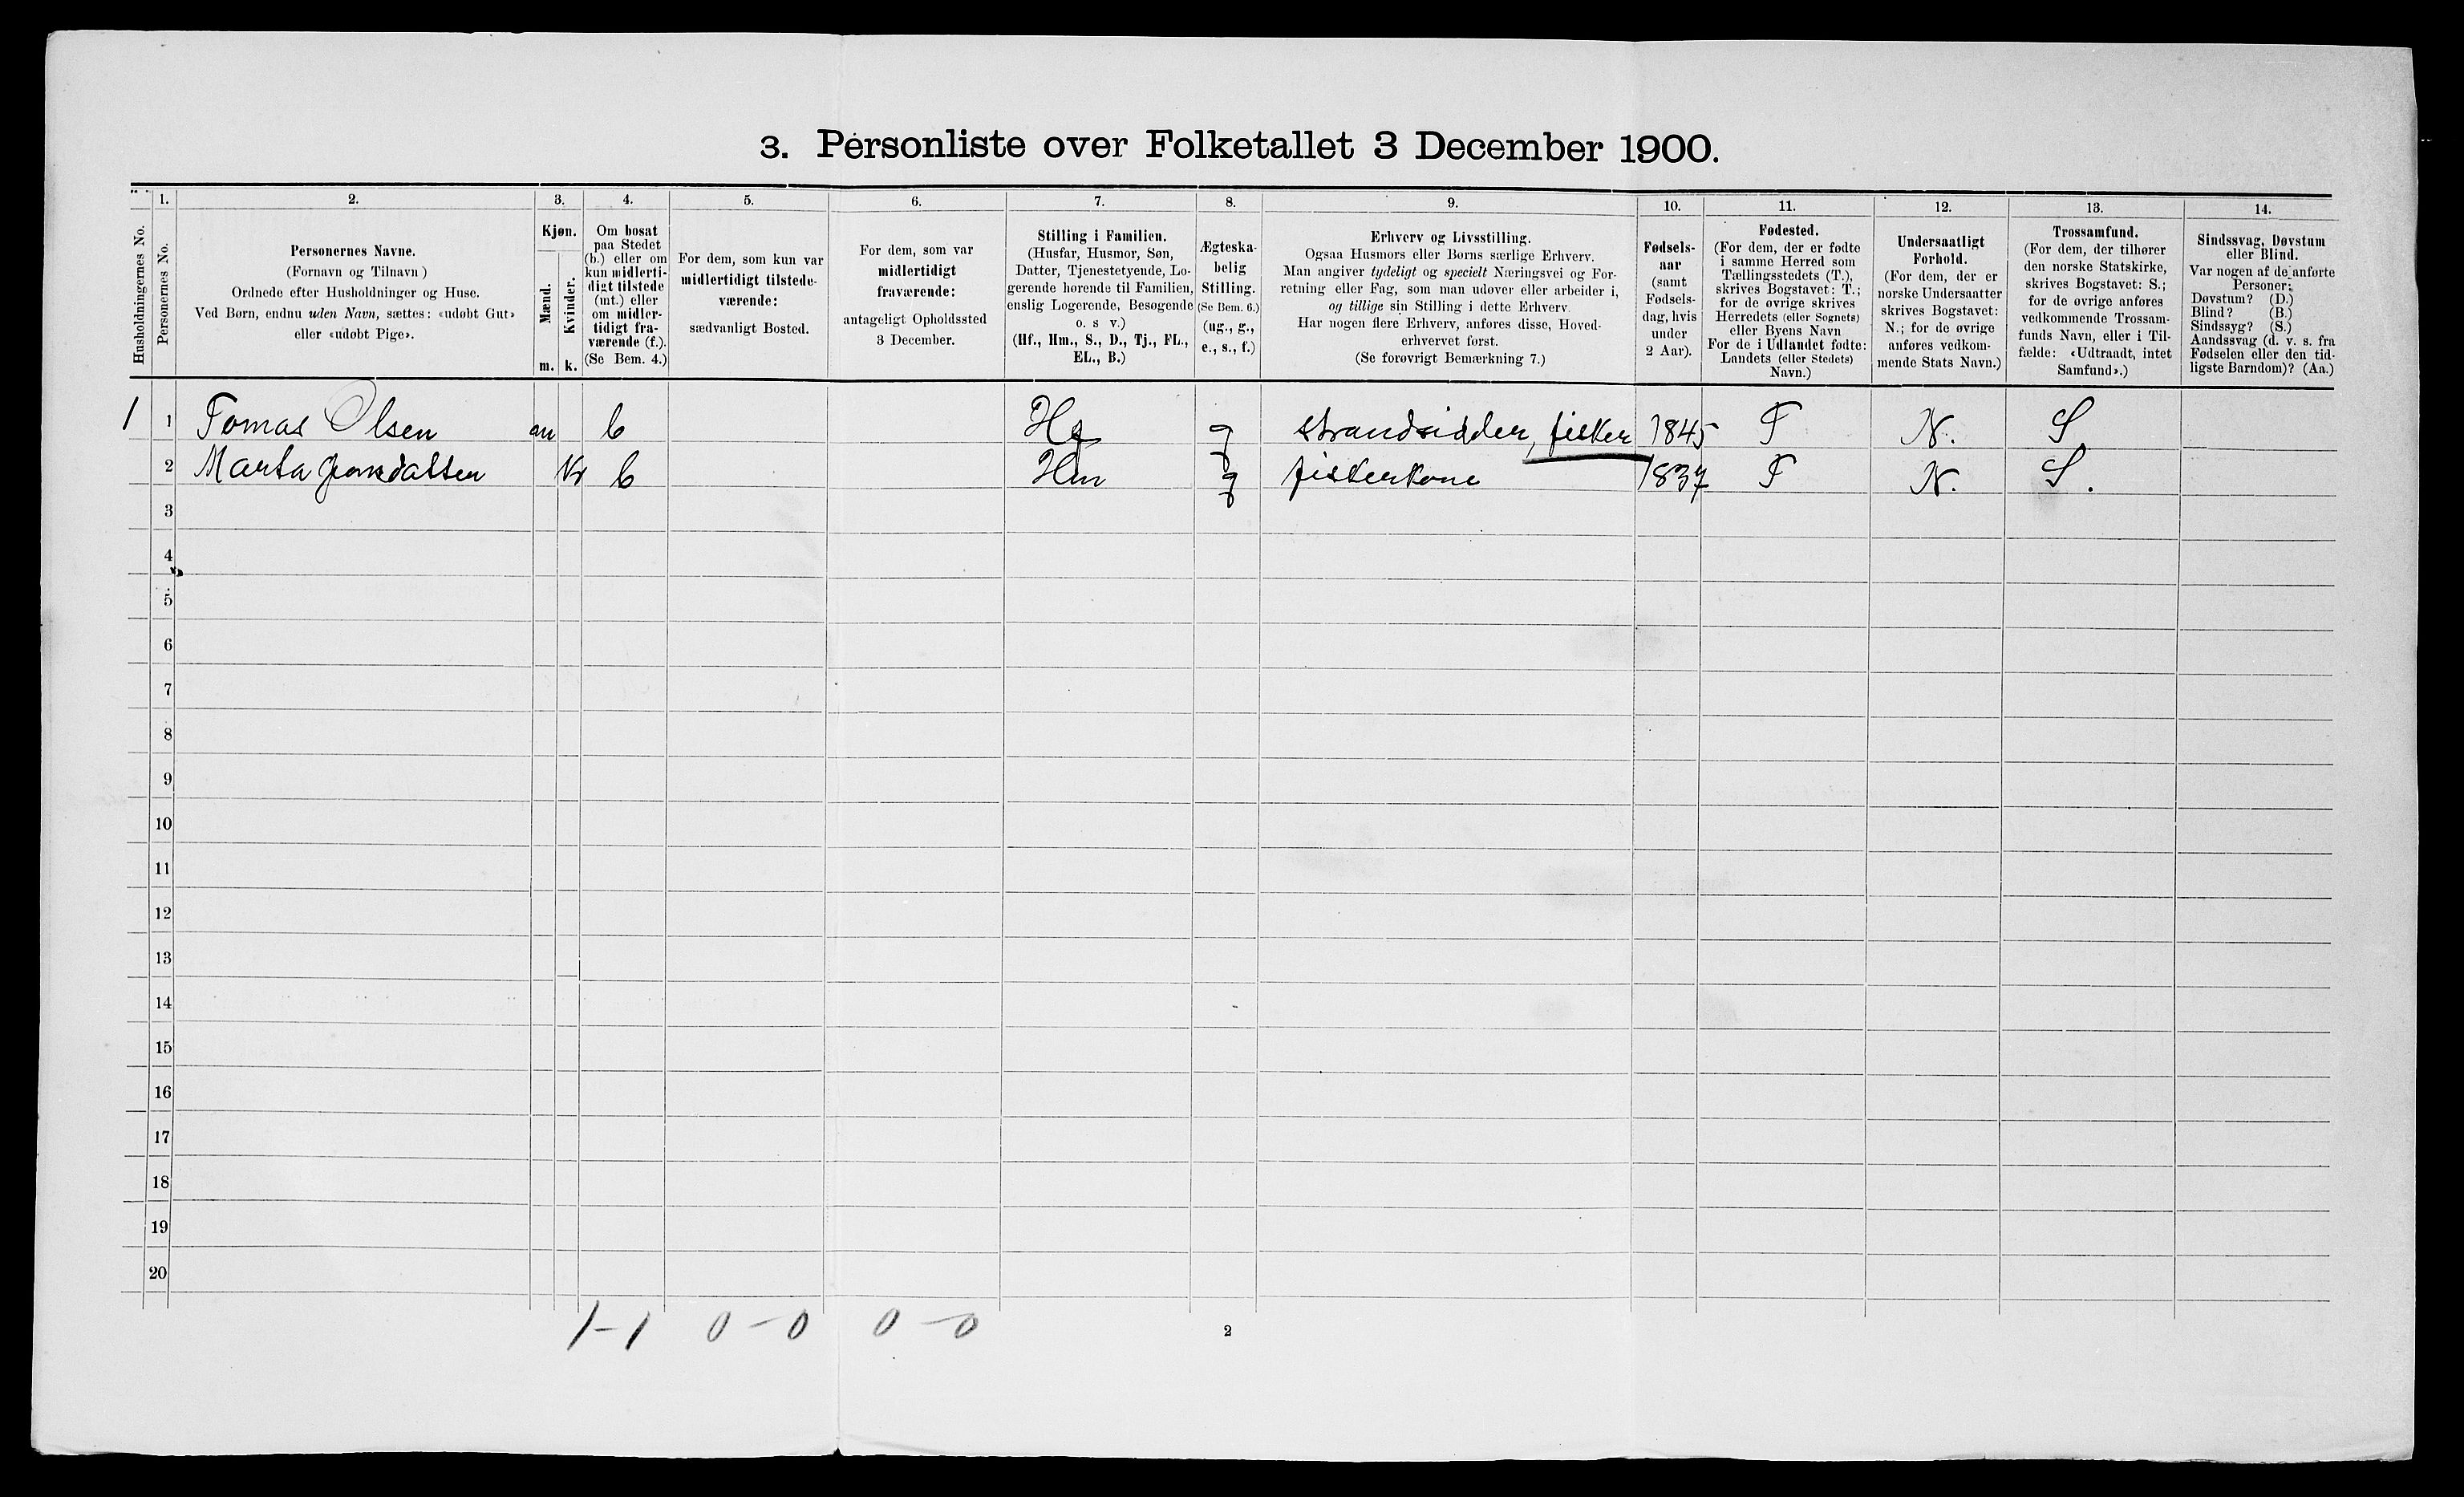 3. Personliste over Folketallet 3 December 1900.
Husholdningernes No.
1.
Personernes No.
2.
Personernes Navne.
(Fornavn og Tilnavn)
Ordnede efter Husholdninger og Huse.
Ved Børn, endnu uden Navn, sættes: «udøbt Gut»
eller «udøbt Pige».
3.
Kjøn.
Mænd.
Kvinder.
m. k.
4.
Om bosat
paa Stedet
(b.) eller om
kun midlerti-
digt tilstede
(mt.) eller
om midler-
tidigt fra-
værende (f.).
(Se Bem. 4.)
5.
For dem, som kun var
midlertidigt tilstede-
værende:
sædvanligt Bosted.
6.
For dem, som var
midlertidigt
fraværende:
antageligt Opholdssted
3 December.
7.
Stilling i Familien.
(Husfar, Husmor, Søn,
Datter, Tjenestetyende, Lo-
gerende hørende til Familien,
enslig Logerende, Besøgende
o. s v.)
(Hf., Hm., S., D., Tj., FL.,
EL., B.)
8.
Ægteska-
belig
Stilling.
(Se Bem. 6.)
(ug., g.,
e., s., f.)
9.
Erhverv og Livsstilling.
Ogsaa Husmors eller Børns særlige Erhverv.
Man angiver tydeligt og specielt Næringsvei og For-
retning eller Fag, som man udøver eller arbeider i,
og tillige sin Stilling i dette Erhverv.
Har nogen flere Erhverv, anføres disse, Hoved-
erhvervet først.
(Se forøvrigt Bemærkning 7.)
10.
Fødsels-
aar
(samt
Fødsels-
dag, hvis
under
2 Aar).
11.
Fødested.
(For dem, der er fødte
i samme Herred som
Tællingsstedets (T.),
skrives Bogstavet: T.;
for de øvrige skrives
Herredets (eller Sognets)
eller Byens Navn
For de i Udlandet fødte:
Landets (eller Stedets)
Navn.)
12.
Undersaatligt
Forhold.
(For dem, der er
norske Undersaatter
skrives Bogstavet:
N.; for de øvrige
anføres vedkom-
mende Stats Navn.)
13.
Trossamfund.
(For dem, der tilhører
den norske Statskirke,
skrives Bogstavet: S.;
for de øvrige anføres
vedkommende Trossam-
funds Navn, eller i Til-
fælde: «Udtraadt, intet
Samfund».)
14.
Sindssvag, Døvstum
eller Blind.
Var nogen af de anførte
Personer:
Døvstum? (D.)
Blind? (B.)
Sindssyg? (S.)
Aandssvag (d. v. s. fra
Fødselen eller den tid-
ligste Barndom)? (Aa.)
1 1 Tomas Olsen m b Hf g strandsidder, fisker 1845 T N. S
2 Marta k b Hm g fiskerkone 1837 T N. S.
3
4
5
6
7
8
9
10
11
12
13
14
15
16
17
18
19
20
1-1 0-0 0-0
2